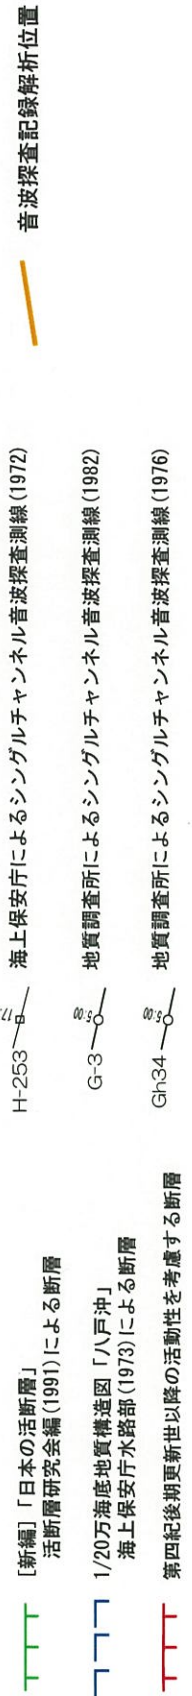 [新編]「日本の活断層」
活断層研究会編(1991)による断層
1/20万海底地質構造図「八戸沖」
海上保安庁水路部(1973)による断層
第四紀後期更新世以降の活動性を考慮する断層
H-253
17
海上保安庁によるシングルチャンネル音波探査測線(1972)
G-3
5:00
地質調査所によるシングルチャンネル音波探査測線(1982)
Gh34
5:00
地質調査所によるシングルチャンネル音波探査測線(1976)
音波探査記録解析位置